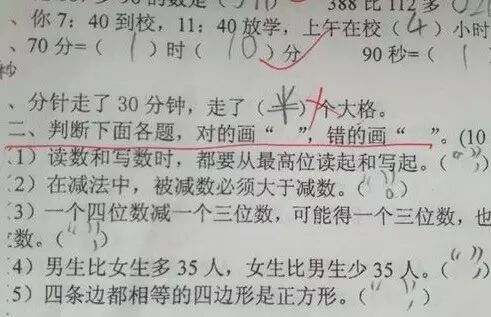 388比112多
、你7：40到校，11：40放学，上午在校（4）小时
、70分=（1）时（10）分 90秒=（1
秒
、分针走了30分钟，走了（半）个大格。
二、判断下面各题，对的画“ ”，错的画“ ”。（10
1）读数和写数时，都要从最高位读起和写起。（“ ”）
2）在减法中，被减数必须大于减数。（“ ”）
3）一个四位数减一个三位数，可能得一个三位数，也
数。（“ ”）
4）男生比女生多35人，女生比男生少35人。（“ ”）
5）四条边都相等的四边形是正方形。（“ ”）